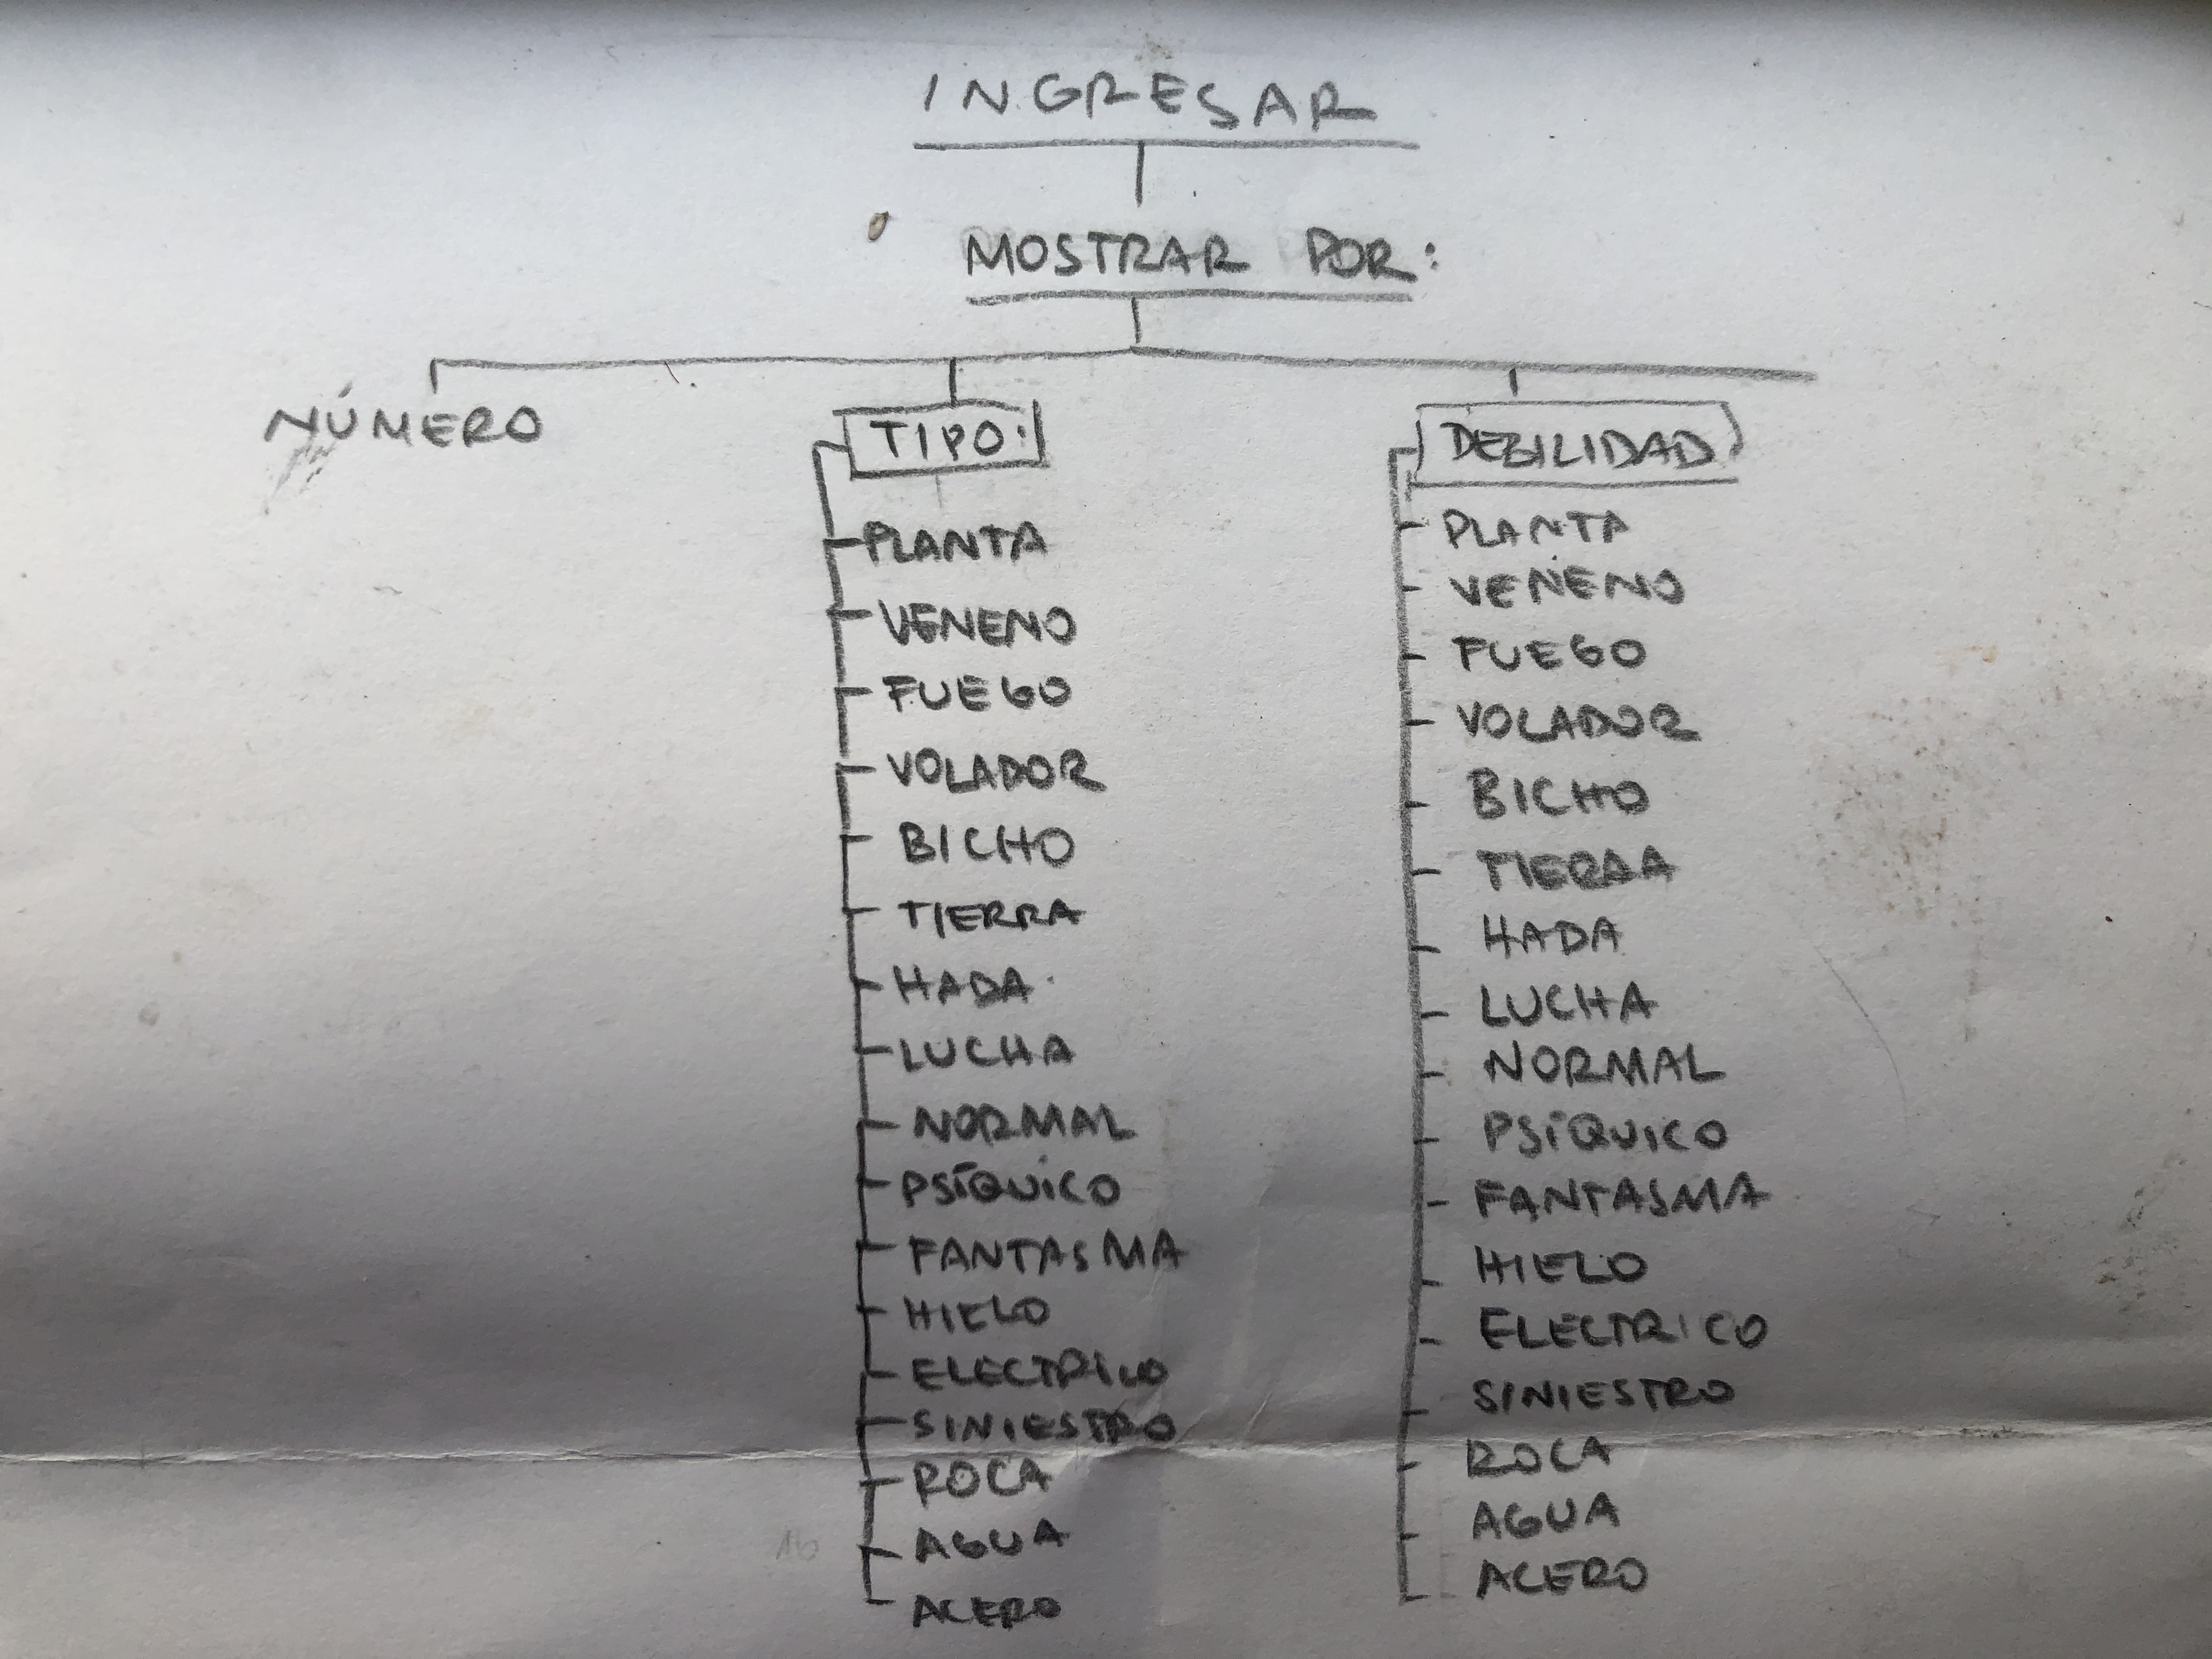 INGRESAR
MOSTRAR POR:
NÚMERO
TIPO:
PLANTA
VENENO
FUEGO
VOLADOR
BICHO
TIERRA
HADA
LUCHA
NORMAL
PSÍQUICO
FANTASMA
HIELO
ELECTRICO
SINIESTRO
ROCA
AGUA
ACERO
DEBILIDAD
PLANTA
VENENO
FUEGO
VOLADOR
BICHO
TIERRA
HADA
LUCHA
NORMAL
PSÍQUICO
FANTASMA
HIELO
ELECTRICO
SINIESTRO
ROCA
AGUA
ACERO